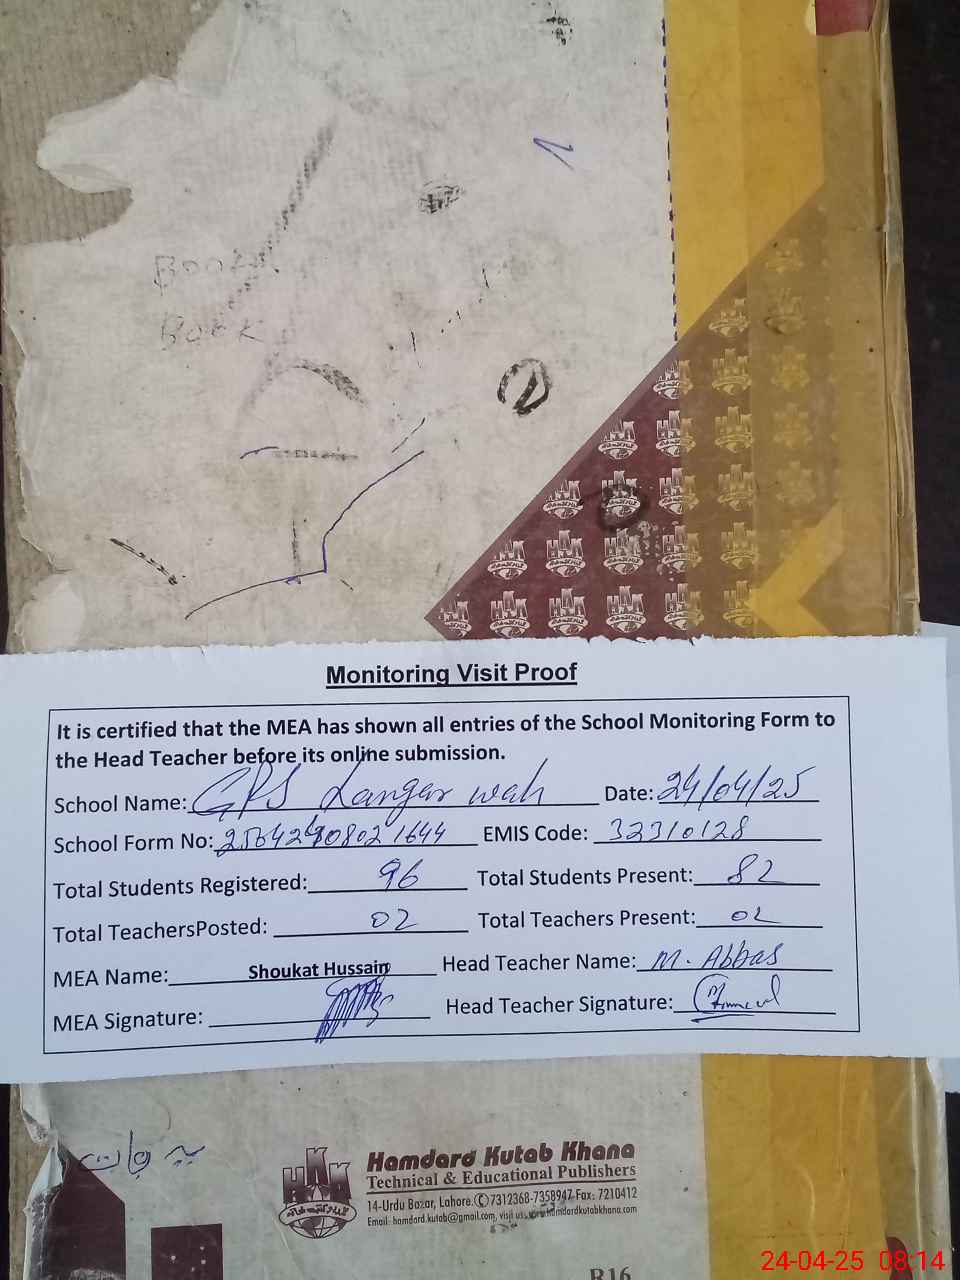 Book
Book
Monitoring Visit Proof
It is certified that the MEA has shown all entries of the School Monitoring Form to
the Head Teacher before its online submission.
School Name: GPS Langar wah Date: 24/04/25
School Form No: EMIS Code: 32310128
Total Students Registered: 96 Total Students Present: 82
Total TeachersPosted: 02 Total Teachers Present: 02
MEA Name: Shoukat Hussain Head Teacher Name: M. Abbas
MEA Signature: Head Teacher Signature:
HKK
Hamdard Kutab Khana
Technical & Educational Publishers
14-Urdu Bazar, Lahore. 7312368-7358947 Fax: 7210412
Email: hamdard.kutab@gmail.com, visit us: www.hamdardkutabkhana.com
R16
24-04-25 08:14